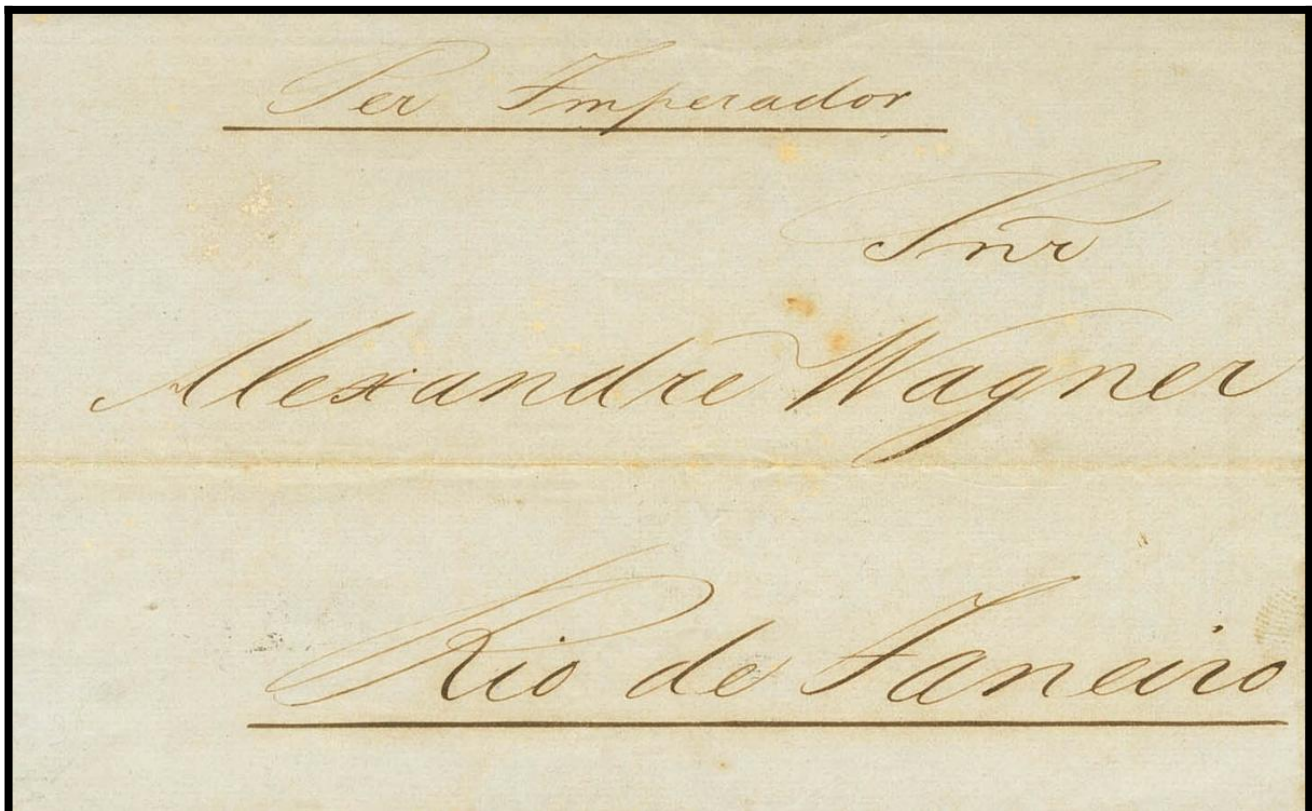 Per Imperador
Snr
Alexandre Wagner
Rio de Janeiro